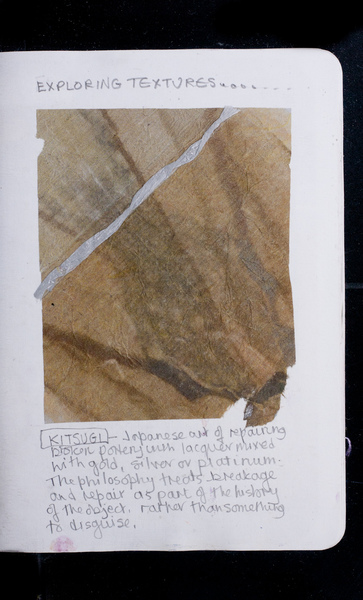 EXPLORING TEXTURES.........
KITSUGI - Japanese art of repairing
broken pottery with lacquer mixed
with gold, silver or platinum.
The philosophy treats breakage
and repair as part of the history
of the object, rather than something
to disguise.